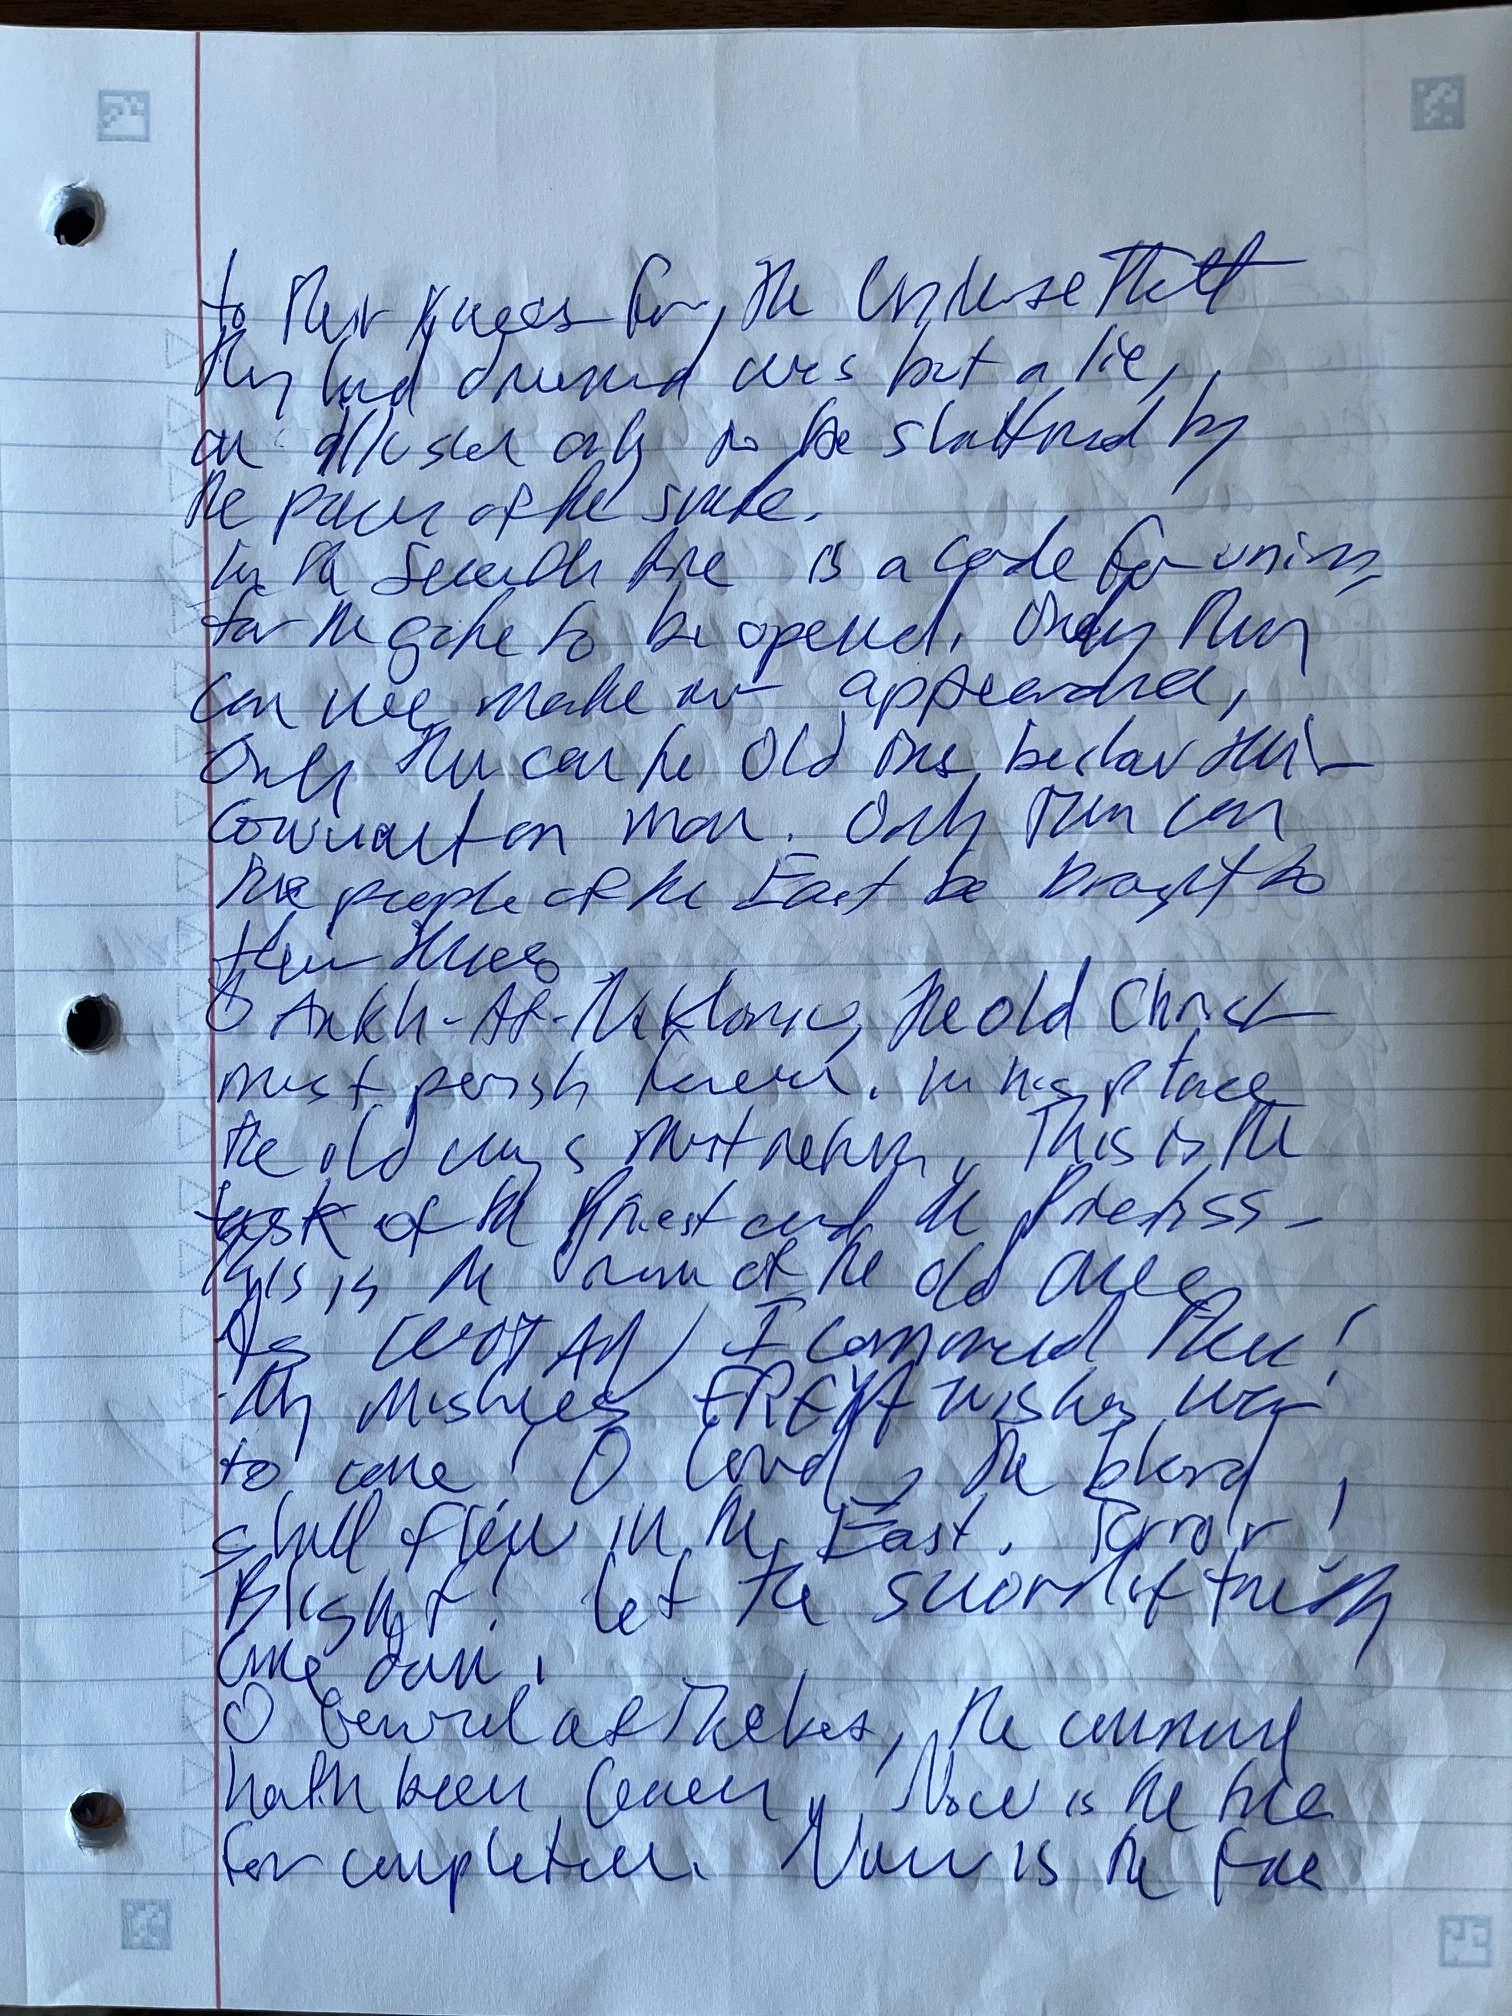 to their knees for, the Universe that
they had dreamed was but a lie,
an illusion only to be shattered by
the power of the snake.
In the Seventh line is a code for
for the gate to be opened. Only then
can we make our appearance,
Only then can the Old Ones bestow their
Covenant on man. Only then can
the people of the East be brought to
their knees
O Ankh-Af-Na-Khonsu, the old Christ
must perish forever. In his place
the old ways must return. This is the
task of the Priest and the Priestess -
this is the of the old ones
As I command thee!
My Mistress FREYA wishes war
to come! O Lord, the blood
shall flow in the East. Terror!
Blight! Let the sword of truth
come down.
O General at Thebes, the command
hath been given. Now is the time
for completion. Now is the time